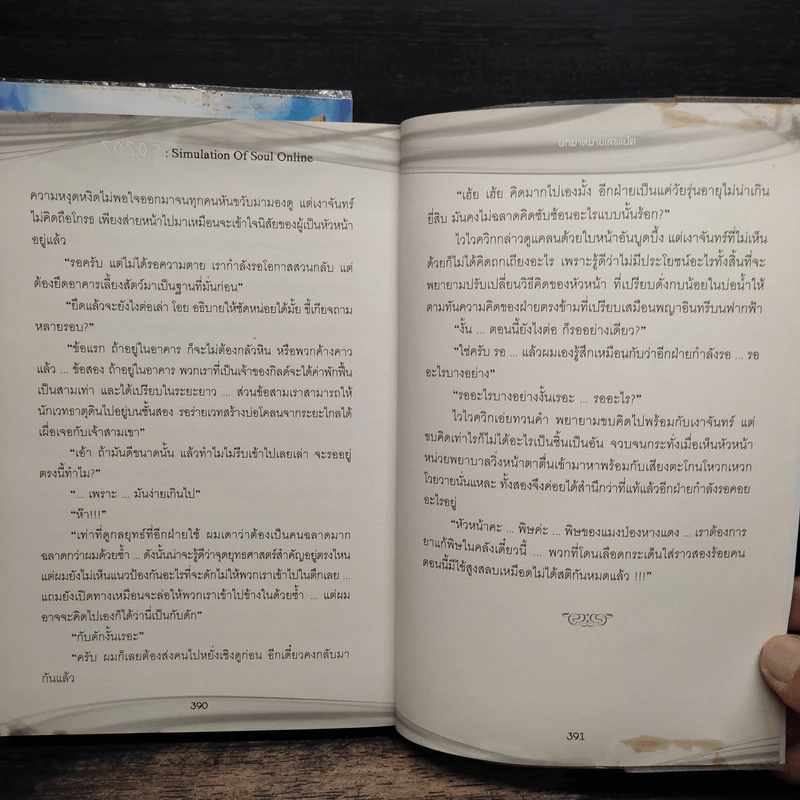 : Simulation Of Soul Online
ความหงุดหงิดไม่พอใจออกมาจนทุกคนหันขวับมามองดู แต่เงาจันทร์
ไม่คิดถือโกรธ เพียงส่ายหน้าไปมาเหมือนจะเข้าใจนิสัยของผู้เป็นหัวหน้า
อยู่แล้ว
“รอครับ แต่ไม่ได้รอความตาย เรากำลังรอโอกาสสวนกลับ แต่
ต้องยึดอาคารเลี้ยงสัตว์มาเป็นฐานที่มั่นก่อน”
“ยึดแล้วจะยังไงต่อเล่า โอย อธิบายให้ชัดหน่อยได้มั้ย ขี้เกียจถาม
หลายรอบ?”
“ข้อแรก ถ้าอยู่ในอาคาร ก็จะไม่ต้องกลัวหิน หรือพวกค้างคาว
แล้ว ... ข้อสอง ถ้าอยู่ในอาคาร พวกเราที่เป็นเจ้าของกิลด์จะได้ค่าพักฟื้น
เป็นสามเท่า และได้เปรียบในระยะยาว ... ส่วนข้อสามเราสามารถให้
นักเวทธาตุดินไปอยู่บนชั้นสอง รอร่ายเวทสร้างบ่อโคลนจากระยะไกลได้
เผื่อเจอกับเจ้าสามเขา”
“เอ้า ถ้ามันดีขนาดนั้น แล้วทำไมไม่รีบเข้าไปเลยเล่า จะรออยู่
ตรงนี้ทำไม?”
“... เพราะ ... มันง่ายเกินไป”
“ห๊า!!!”
“เท่าที่ดูกลยุทธ์ที่อีกฝ่ายใช้ ผมเดาว่าต้องเป็นคนฉลาดมาก
ฉลาดกว่าผมด้วยซ้ำ ... ดังนั้นน่าจะรู้ดีว่าจุดยุทธศาสตร์สำคัญอยู่ตรงไหน
แต่ผมยังไม่เห็นแนวป้องกันอะไรที่จะดักไม่ให้พวกเราเข้าไปในตึกเลย ...
แถมยังเปิดทางเหมือนจะล่อให้พวกเราเข้าไปข้างในด้วยซ้ำ ... แต่ผม
อาจจะคิดไปเองก็ได้ว่านี่เป็นกับดัก”
“กับดักงั้นเรอะ”
“ครับ ผมก็เลยต้องส่งคนไปหยั่งเชิงดูก่อน อีกเดี๋ยวคงกลับมา
กันแล้ว
390
“เฮ้ย เฮ้ย คิดมากไปเองมั้ง อีกฝ่ายเป็นแค่วัยรุ่นอายุไม่น่าเกิน
ยี่สิบ มันคงไม่ฉลาดคิดซับซ้อนอะไรแบบนั้นร้อก?”
ไวไวควิกกล่าวดูแคลนด้วยใบหน้าอันบูดบึ้ง แต่เงาจันทร์ที่ไม่เห็น
ด้วยก็ไม่ได้คิดถกเถียงอะไร เพราะรู้ดีว่าไม่มีประโยชน์อะไรทั้งสิ้นที่จะ
พยายามปรับเปลี่ยนวิธีคิดของหัวหน้า ที่เปรียบดั่งกบน้อยในบ่อน้ำให้
ตามทันความคิดของฝ่ายตรงข้ามที่เปรียบเสมือนพญาอินทรีบนฟากฟ้า
“งั้น ... ตอนนี้ยังไงต่อ ก็รออย่างเดียว?”
“ใช่ครับ รอ ... แล้วผมเองรู้สึกเหมือนกับว่าอีกฝ่ายกำลังรอ ... รอ
อะไรบางอย่าง”
“รออะไรบางอย่างงั้นเรอะ ... รออะไร?”
ไวไวควิกเอ่ยทวนคำ พยายามขบคิดไปพร้อมกับเงาจันทร์ แต่
ขบคิดเท่าไรก็ไม่ได้อะไรเป็นชิ้นเป็นอัน จวบจนกระทั่งเมื่อเห็นหัวหน้า
หน่วยพยาบาลวิ่งหน้าตาตื่นเข้ามาหาพร้อมกับเสียงตะโกนโหวกเหวก
โวยวายนั่นแหละ ทั้งสองจึงค่อยได้สำนึกว่าที่แท้แล้วอีกฝ่ายกำลังรอคอย
อะไรอยู่
“หัวหน้าคะ ... พิษค่ะ ... พิษของแมงป่องหางแดง ... เราต้องการ
ยาแก้พิษในคลังเดี๋ยวนี้ ... พวกที่โดนเลือดกระเด็นใส่ราวสองร้อยคน
ตอนนี้มีไข้สูงสลบเหมือดไม่ได้สติกันหมดแล้ว !!!”
391